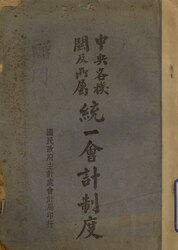 中央各機
關及所屬
統一會計制度
國民政府主計處會計局印行